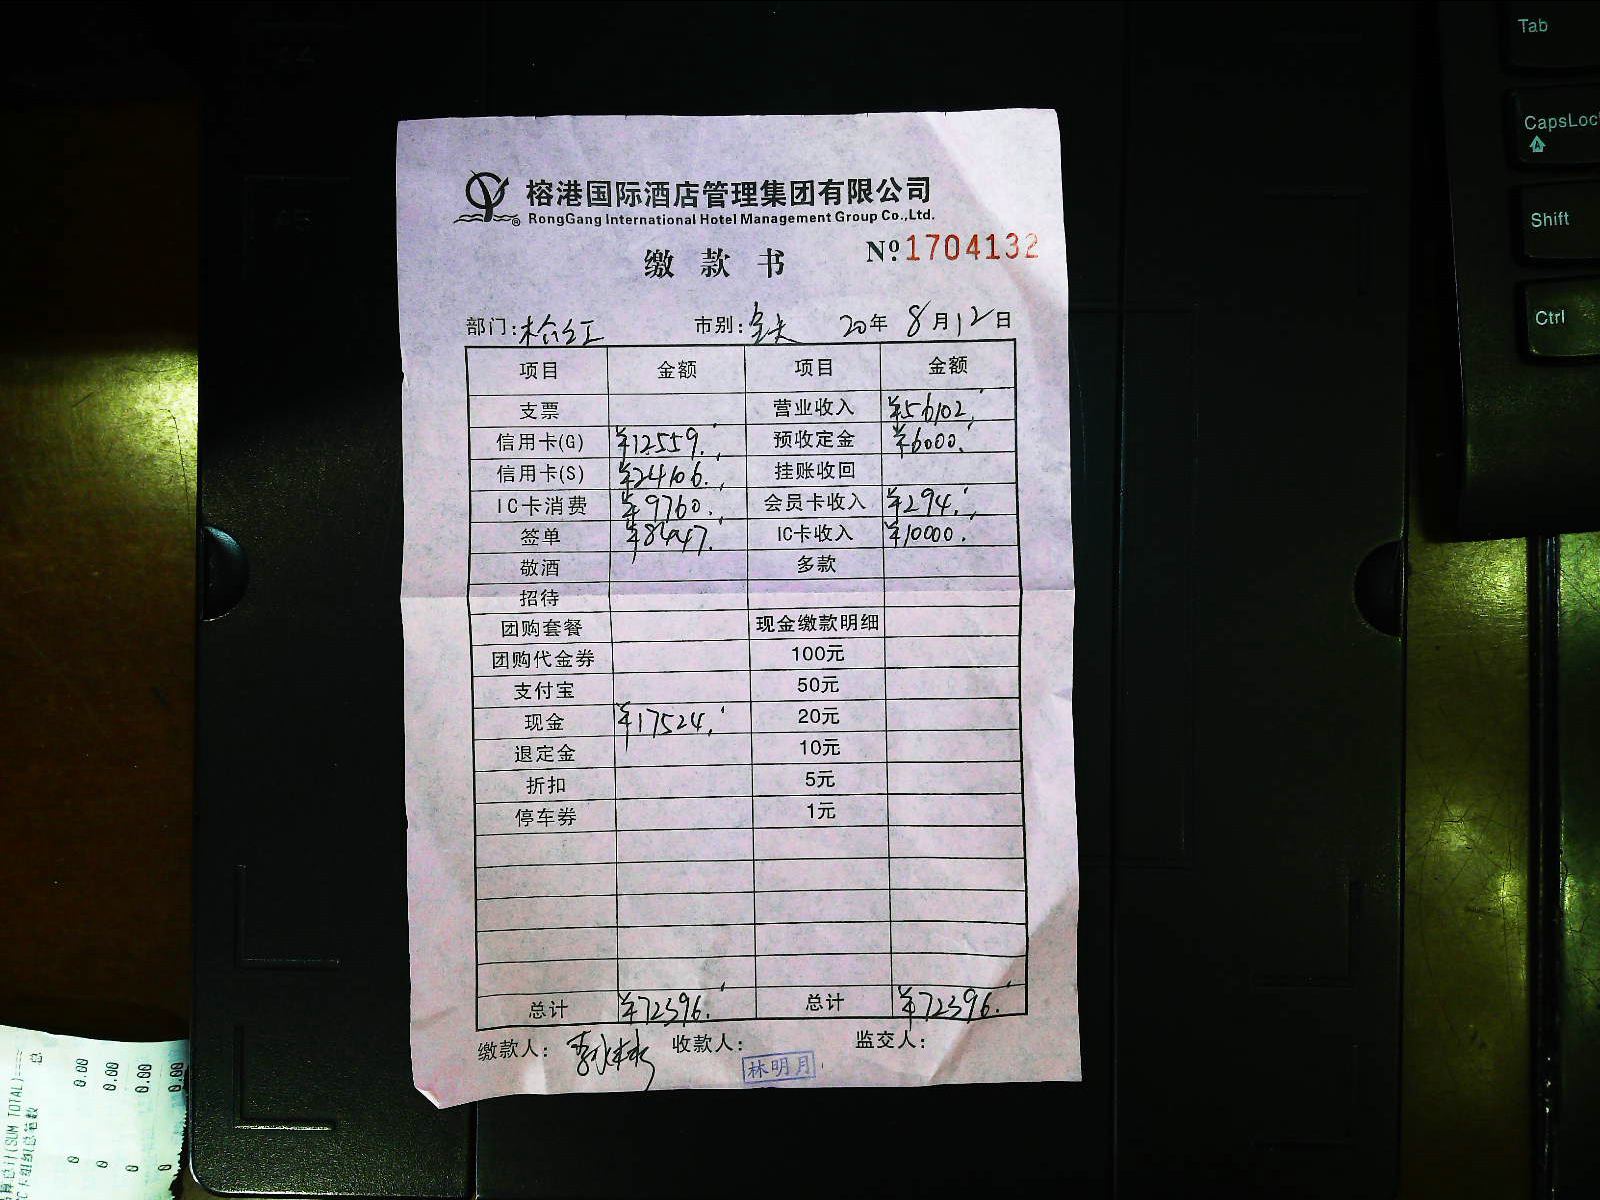 榕港国际酒店管理集团有限公司
RongGang International Hotel Management Group Co.,Ltd.
缴 款 书 Nº 1704132
部门: 市别:全天 20年 8月12日
项目 金额 项目 金额
支票 营业收入 ¥56102.
信用卡(G) ¥12559. 预收定金 ¥6000.
信用卡(S) ¥24106. 挂账收回
IC卡消费 ¥9760. 会员卡收入 ¥294.
签单 ¥8447. IC卡收入 ¥10000.
敬酒 多款
招待
团购套餐 现金缴款明细
团购代金券 100元
支付宝 50元
现金 ¥17524. 20元
退定金 10元
折扣 5元
停车券 1元
总计 ¥72396. 总计 ¥72396.
缴款人: 收款人: 林明月 监交人:
Tab
CapsLoc
Shift
Ctrl
(SUM TOTAL)==== 总
0.00
0.00
0.00
0.00
0
0
0
0